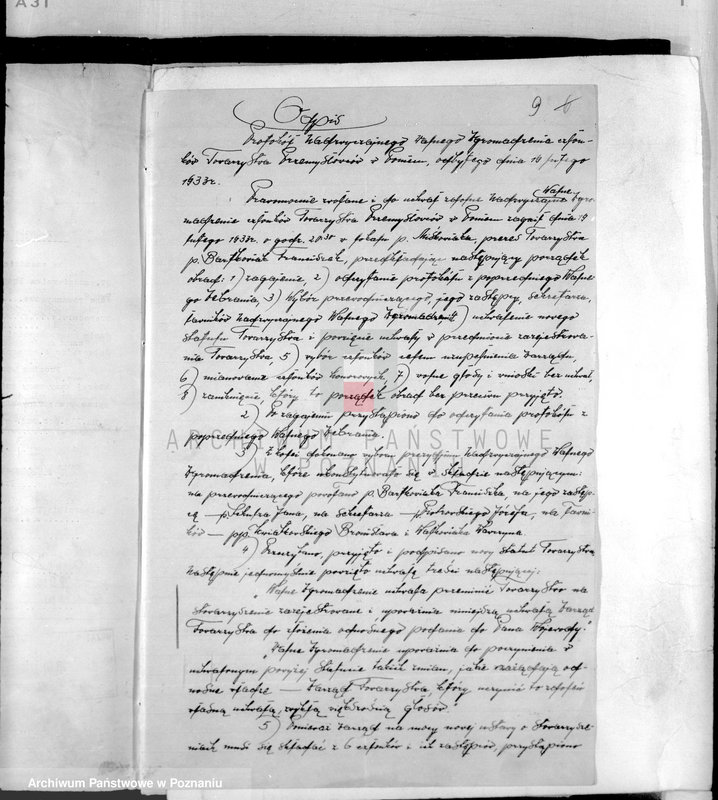 9
Odpis
Protokół Nadzwyczajnego Walnego Zgromadzenia człon-
ków Towarzystwa Przemysłowców w odbytego dnia 19 lutego
1933 r.
Prawomocnie zwołane i do uchwał zdolne Nadzwyczajne Walne Zgro-
madzenie członków Towarzystwa Przemysłowców w zagaił dnia 19
lutego 1933 r. o godz. 20³⁰ w lokalu p. prezes Towarzystwa
p. Bartkowiak Franciszek, przedkładając następujący porządek
obrad: 1) zagajenie, 2) odczytanie protokółu z poprzedniego Walne-
go Zebrania, 3) Wybór przewodniczącego, jego zastępcy, sekretarza,
ławników Nadzwyczajnego Walnego Zgromadzenia, 4) uchwalenie nowego
statutu Towarzystwa i powzięcie uchwały w przedmiocie zarejestrowa-
nia Towarzystwa 5) wybór członków celem uzupełnienia Zarządu,
6) mianowanie członków honorowych, 7) wolne głosy i wnioski bez uchwał,
8) zamknięcie, który to porządek obrad bez przeciwu przyjęto.
2) Po zagajeniu przystąpiono do odczytania protokółu z
poprzedniego Walnego Zebrania.
3) Z kolei dokonano wyboru prezydjum Nadzwyczajnego Walnego
Zgromadzenia, które ukonstytuowało się w składzie następującym:
na przewodniczącego powołano p. Bartkowiaka Franciszka, na jego zastęp-
cę — p. Jana, na sekretarza — Piotrowskiego Józefa, na ławni-
ków — pp. Kwiatkowskiego Bronisława i Wawrzyna
4) Przeczytano, przyjęto i podpisano nowy statut Towarzystwa,
następnie jednomyślnie powzięto uchwałę treści następującej:
"Walne Zgromadzenie uchwala przemienić Towarzystwo na
stowarzyszenie zarejestrowane i upoważnia niniejszą uchwałą Zarząd
Towarzystwa do złożenia odnośnego podania do Pana Wojewody."
"Walne Zgromadzenie upoważnia do poczynienia w
uchwalonym powyżej statucie takich zmian, jakie zażądają od-
nośne władze — Zarząd Towarzystwa, który uczyni to
własną uchwałą, zwykłą większością głosów."
5) Ponieważ Zarząd na mocy nowej ustawy o Stowarzysze-
niach musi się składać z 6 członków i ich zastępców, przystąpiono
ARCHIWUM PAŃSTWOWE
W POZNANIU
Archiwum Państwowe w Poznaniu